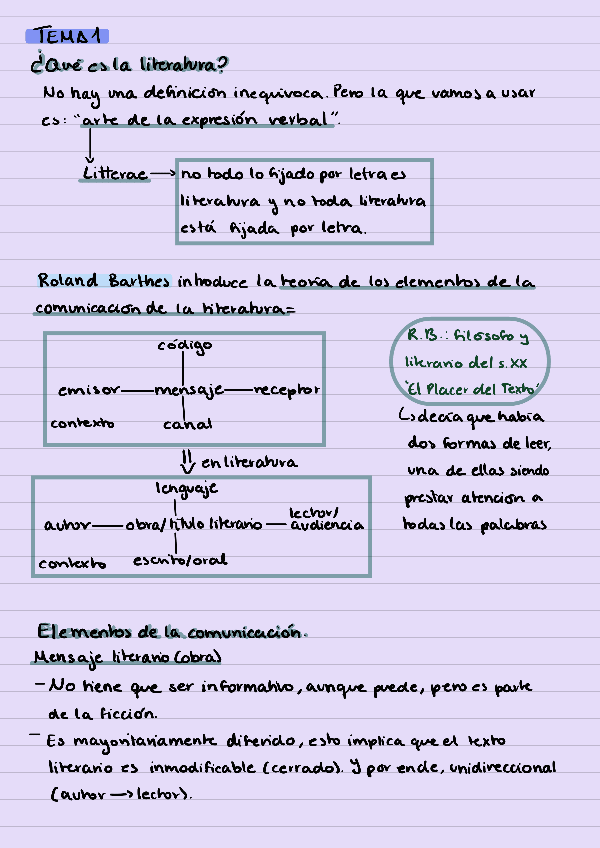 TEMA 1
¿Qué es la literatura?
No hay una definición inequivoca. Pero la que vamos a usar
es: "arte de la expresión verbal".
Litterae → no todo lo fijado por letra es
literatura y no toda literatura
está fijada por letra.
Roland Barthes introduce la teoría de los elementos de la
comunicación de la literatura=
código
emisor — mensaje — receptor
contexto canal
⇓ en literatura
lenguaje
autor — obra/título literario — lector/
audiencia
contexto escrito/oral
R.B.: filósofo y
literario del s.XX
"El Placer del Texto"
↳ decía que había
dos formas de leer,
una de ellas siendo
prestar atención a
todas las palabras
Elementos de la comunicación.
Mensaje literario (obra)
- No tiene que ser informativo, aunque puede, pero es parte
de la ficción.
- Es mayoritariamente diferido, esto implica que el texto
literario es inmodificable (cerrado). Y por ende, unidireccional
(autor → lector).